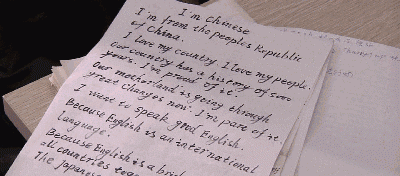 I'm Chinese
I'm from the people's Republic
of China.
I love my country. I love my people.
Our country has a history of 5000
years. I'm proud of it.
Our motherland is going through
great changes now. I'm part of it.
I want to speak good English.
Because English is an international
language.
Because English is a brid
all countries
The Japanese